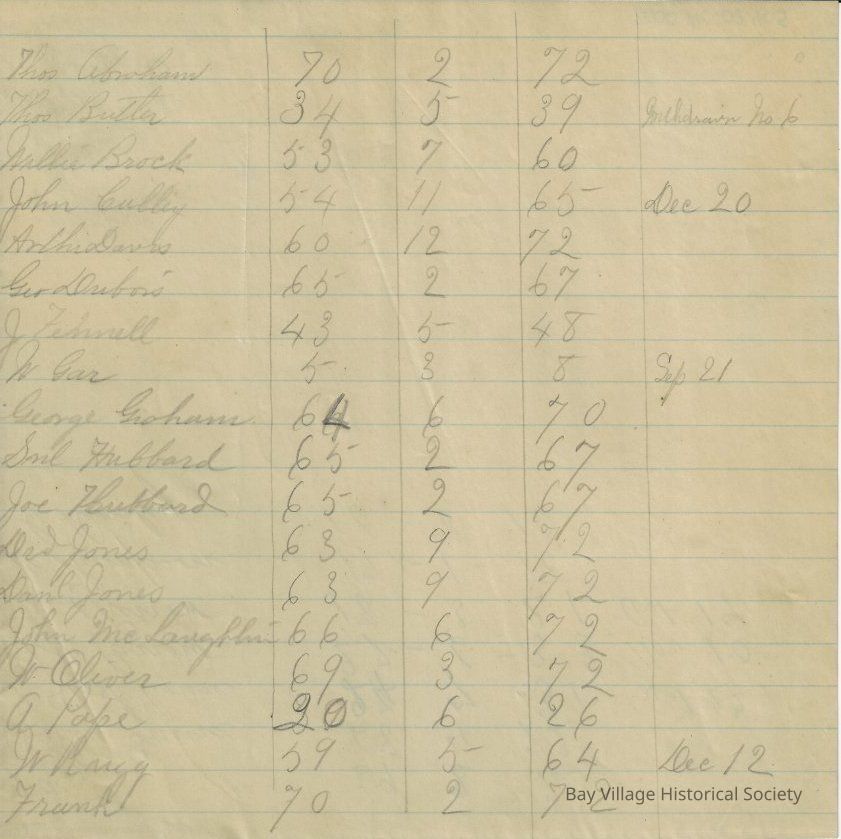 Thos Abraham 70 2 72
Thos Butler 34 5 39 Withdrawn No 6
Willie Brock 53 7 60
John Culley 54 11 65 Dec 20
Arthur Davis 60 12 72
Geo Dubois 65 2 67
J 43 5 48
W Gar 5 3 8 Sep 21
George Graham 64 6 70
Hubbard 65 2 67
Joe Hubbard 65 2 67
Jones 63 9 72
Danl Jones 63 9 72
John McLaughlin 66 6 72
W Oliver 69 3 72
A Pope 20 6 26
W 59 5 64 Dec 12
Frank 70 2 72
Bay Village Historical Society